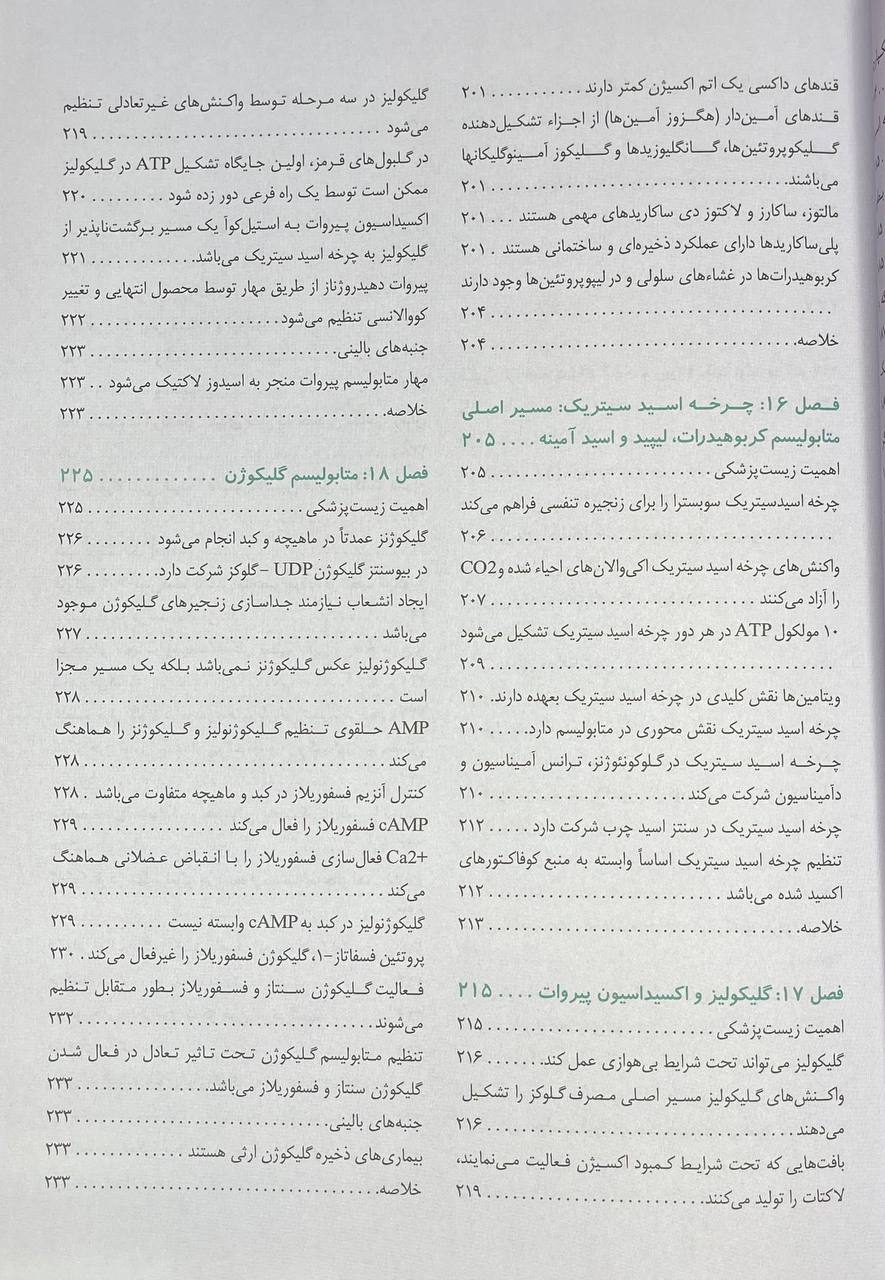 قندهای داکسی یک اتم اکسیژن کمتر دارند . . . . . . . . . . . ۲۰۱
قندهای آمین‌دار (هگزوز آمین‌ها) از اجزاء تشکیل‌دهنده
گلیکوپروتئین‌ها، گانگلیوزیدها و گلیکوز آمینوگلیکانها
می‌باشند. . . . . . . . . . . . . . . . . . . . . . . . . . . . . . . . . . ۲۰۱
مالتوز، ساکارز و لاکتوز دی ساکاریدهای مهمی هستند . . . ۲۰۱
پلی‌ساکاریدها دارای عملکرد ذخیره‌ای و ساختمانی هستند . ۲۰۱
کربوهیدرات‌ها در غشاءهای سلولی و در لیپوپروتئین‌ها وجود دارند
. . . . . . . . . . . . . . . . . . . . . . . . . . . . . . . . . . . . . . ۲۰۴
خلاصه. . . . . . . . . . . . . . . . . . . . . . . . . . . . . . . . . . ۲۰۴
فصل ۱۶: چرخه اسید سیتریک: مسیر اصلی
متابولیسم کربوهیدرات، لیپید و اسید آمینه . . . . ۲۰۵
اهمیت زیست‌پزشکی . . . . . . . . . . . . . . . . . . . . . . . . ۲۰۵
چرخه اسیدسیتریک سوبسترا را برای زنجیره تنفسی فراهم می‌کند
. . . . . . . . . . . . . . . . . . . . . . . . . . . . . . . . . . . . . . ۲۰۶
واکنش‌های چرخه اسید سیتریک اکی‌والان‌های احیاء شده و CO2
را آزاد می‌کنند . . . . . . . . . . . . . . . . . . . . . . . . . . . . . ۲۰۷
۱۰ مولکول ATP در هر دور چرخه اسید سیتریک تشکیل می‌شود
. . . . . . . . . . . . . . . . . . . . . . . . . . . . . . . . . . . . . . ۲۰۹
ویتامین‌ها نقش کلیدی در چرخه اسید سیتریک بعهده دارند. ۲۱۰
چرخه اسید سیتریک نقش محوری در متابولیسم دارد. . . . . ۲۱۰
چرخه اسید سیتریک در گلوکونئوژنز، ترانس آمیناسیون و
دآمیناسیون شرکت می‌کند . . . . . . . . . . . . . . . . . . . . . ۲۱۰
چرخه اسید سیتریک در سنتز اسید چرب شرکت دارد . . . . . ۲۱۲
تنظیم چرخه اسید سیتریک اساساً وابسته به منبع کوفاکتورهای
اکسید شده می‌باشد . . . . . . . . . . . . . . . . . . . . . . . . ۲۱۲
خلاصه. . . . . . . . . . . . . . . . . . . . . . . . . . . . . . . . . . ۲۱۳
فصل ۱۷: گلیکولیز و اکسیداسیون پیروات . . . . ۲۱۵
اهمیت زیست‌پزشکی . . . . . . . . . . . . . . . . . . . . . . . . ۲۱۵
گلیکولیز می‌تواند تحت شرایط بی‌هوازی عمل کند. . . . . . . ۲۱۶
واکنش‌های گلیکولیز مسیر اصلی مصرف گلوکز را تشکیل
می‌دهند . . . . . . . . . . . . . . . . . . . . . . . . . . . . . . . . . ۲۱۶
بافت‌هایی که تحت شرایط کمبود اکسیژن فعالیت می‌نمایند،
لاکتات را تولید می‌کنند. . . . . . . . . . . . . . . . . . . . . . . ۲۱۹
گلیکولیز در سه مرحله توسط واکنش‌های غیرتعادلی تنظیم
می‌شود . . . . . . . . . . . . . . . . . . . . . . . . . . . . . . . . . ۲۱۹
در گلبول‌های قرمز، اولین جایگاه تشکیل ATP در گلیکولیز
ممکن است توسط یک راه فرعی دور زده شود . . . . . . . . . ۲۲۰
اکسیداسیون پیروات به استیل‌کوآ یک مسیر برگشت‌ناپذیر از
گلیکولیز به چرخه اسید سیتریک می‌باشد. . . . . . . . . . . . . ۲۲۱
پیروات دهیدروژناز از طریق مهار توسط محصول انتهایی و تغییر
کووالانسی تنظیم می‌شود . . . . . . . . . . . . . . . . . . . . . . ۲۲۲
جنبه‌های بالینی. . . . . . . . . . . . . . . . . . . . . . . . . . . . ۲۲۳
مهار متابولیسم پیروات منجر به اسیدوز لاکتیک می‌شود . . ۲۲۳
خلاصه. . . . . . . . . . . . . . . . . . . . . . . . . . . . . . . . . . ۲۲۳
فصل ۱۸: متابولیسم گلیکوژن . . . . . . . . . . . . . ۲۲۵
اهمیت زیست‌پزشکی . . . . . . . . . . . . . . . . . . . . . . . . ۲۲۵
گلیکوژنز عمدتاً در ماهیچه و کبد انجام می‌شود . . . . . . . . ۲۲۶
در بیوسنتز گلیکوژن UDP –گلوکز شرکت دارد. . . . . . . . . . ۲۲۶
ایجاد انشعاب نیازمند جداسازی زنجیرهای گلیکوژن موجود
می‌باشد . . . . . . . . . . . . . . . . . . . . . . . . . . . . . . . . . ۲۲۷
گلیکوژنولیز عکس گلیکوژنز نمی‌باشد بلکه یک مسیر مجزا
است . . . . . . . . . . . . . . . . . . . . . . . . . . . . . . . . . . . ۲۲۸
AMP حلقوی تنظیم گلیکوژنولیز و گلیکوژنز را هماهنگ
می‌کند . . . . . . . . . . . . . . . . . . . . . . . . . . . . . . . . . . ۲۲۸
کنترل آنزیم فسفوریلاز در کبد و ماهیچه متفاوت می‌باشد . ۲۲۸
cAMP فسفوریلاز را فعال می‌کند . . . . . . . . . . . . . . . . . ۲۲۹
Ca2+ فعال‌سازی فسفوریلاز را با انقباض عضلانی هماهنگ
می‌کند . . . . . . . . . . . . . . . . . . . . . . . . . . . . . . . . . . ۲۲۹
گلیکوژنولیز در کبد به cAMP وابسته نیست . . . . . . . . . . ۲۲۹
پروتئین فسفاتاز–۱، گلیکوژن فسفوریلاز را غیرفعال می‌کند . ۲۳۰
فعالیت گلیکوژن سنتاز و فسفوریلاز بطور متقابل تنظیم
می‌شوند. . . . . . . . . . . . . . . . . . . . . . . . . . . . . . . . . ۲۳۲
تنظیم متابولیسم گلیکوژن تحت تاثیر تعادل در فعال شدن
گلیکوژن سنتاز و فسفوریلاز می‌باشد. . . . . . . . . . . . . . . . ۲۳۳
جنبه‌های بالینی. . . . . . . . . . . . . . . . . . . . . . . . . . . . ۲۳۳
بیماری‌های ذخیره گلیکوژن ارثی هستند . . . . . . . . . . . . . ۲۳۳
خلاصه. . . . . . . . . . . . . . . . . . . . . . . . . . . . . . . . . . ۲۳۳